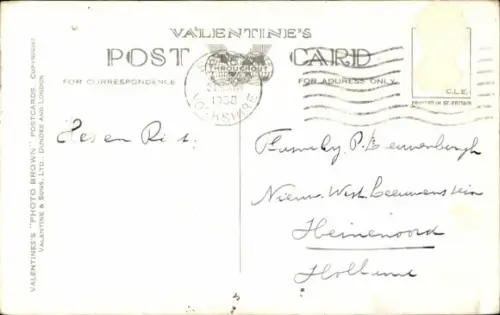 VALENTINE'S
POST CARD
FOR CORRESPONDENCE
FOR ADDRESS ONLY
THROUGHOUT
1950
YORKSHIRE
C.L.E.
PRINTED IN GT. BRITAIN
VALENTINE'S "PHOTO BROWN" POSTCARDS. COPYRIGHT
VALENTINE & SONS, LTD., DUNDEE AND LONDON
Hes en Rit.
Family P.
Nieuw West
Heinenoord
Holland